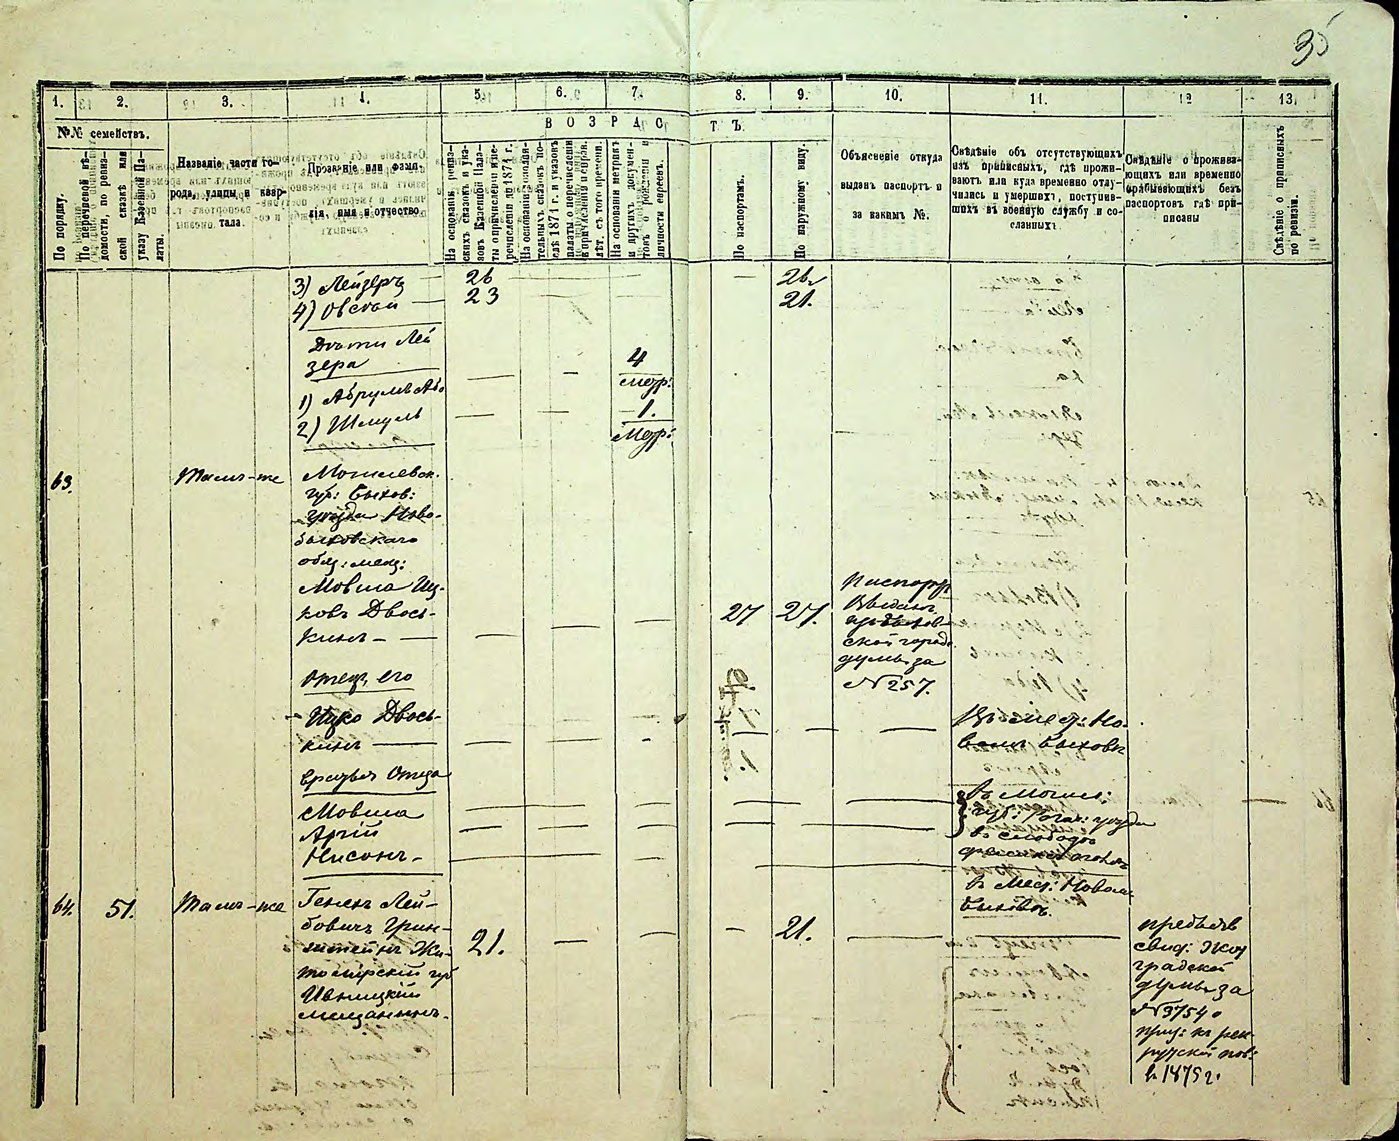 35
1. 2. 3. 4. 5. 6. 7. 8. 9. 10. 11. 12 13.
№№ семействъ.
По порядку.
По перечневой вѣ-
домости, по ревиз-
ской сказкѣ или
указу Казенной Па-
латы.
Названіе части го-
рода, улицы и квар-
тала.
Прозваніе или фами-
лія, имя и отчество
ВОЗРАСТЪ.
На основаніи ревиз-
скихъ сказокъ и ука-
зовъ Казенной Пала-
ты о причисленіи и пе-
речисленіи до 1874 г.
На основаніи дополни-
тельныхъ сказокъ по-
слѣ 1874 г. и указовъ
палаты о перечисленіи
и причисленіи и исправ.
лѣт. съ того времени.
На основаніи метрик
и другихъ докумен-
товъ о рожденіи и
личности евреевъ.
По паспортамъ.
По наружному виду.
Объясненіе откуда
выданъ паспортъ и
за какимъ №.
Свѣдѣніе объ отсутствующихъ
изъ приписныхъ, гдѣ прожи-
ваютъ или куда временно отлу-
чились и умершихъ, поступив-
шихъ въ военную службу и со-
сланныхъ.
Свѣдѣніе о прожива-
ющихъ или временно
пребывающихъ безъ
паспортовъ гдѣ при-
писаны
Свѣдѣніе о приписныхъ
по ревизіи.
3) Лейзеръ — 26 26
4) Овсей — 23 21.
Дѣти Лей
зера
4
метр:
1) Абрумъ Аб.
2) Шмуль
1.
Метр:
63. Тамъ-же Могилевск.
губ: Быхов:
уѣзда Ново-
быховскаго
общ: мещ:
Мовша Иц-
ковъ Двось-
кинъ — 27 27.
Паспортъ
выданъ
быхов-
ской город.
думы за
№ 257.
Отецъ его
Ицко Двось-
кинъ —
Въ мест: Но-
вомъ Быховѣ
братья Отца
Мовша
Арій
Нисонъ -
въ Могил:
губ: Рогач: уѣзда
въ слободѣ
въ Мест: Новом
Быховѣ.
64. 51. Тамъ-же Генехъ Лей-
бовичъ Грин-
штейнъ Жи-
томирскій губ
Ивницкій
мещанинъ.
21. 21.
предъяв
свид:
градской
думы за
№ 3754 о
приз: къ рек-
рутской пов:
в 1875 г.